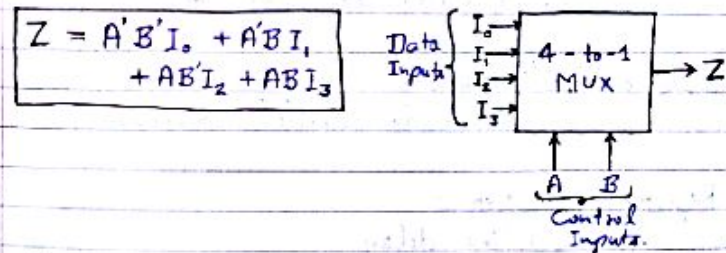 Z = A'B'I₀ + A'BI₁
+ AB'I₂ + ABI₃
Data
Inputs
I₀
I₁
I₂
I₃
4-to-1
MUX
Z
A B
Control
Inputs.